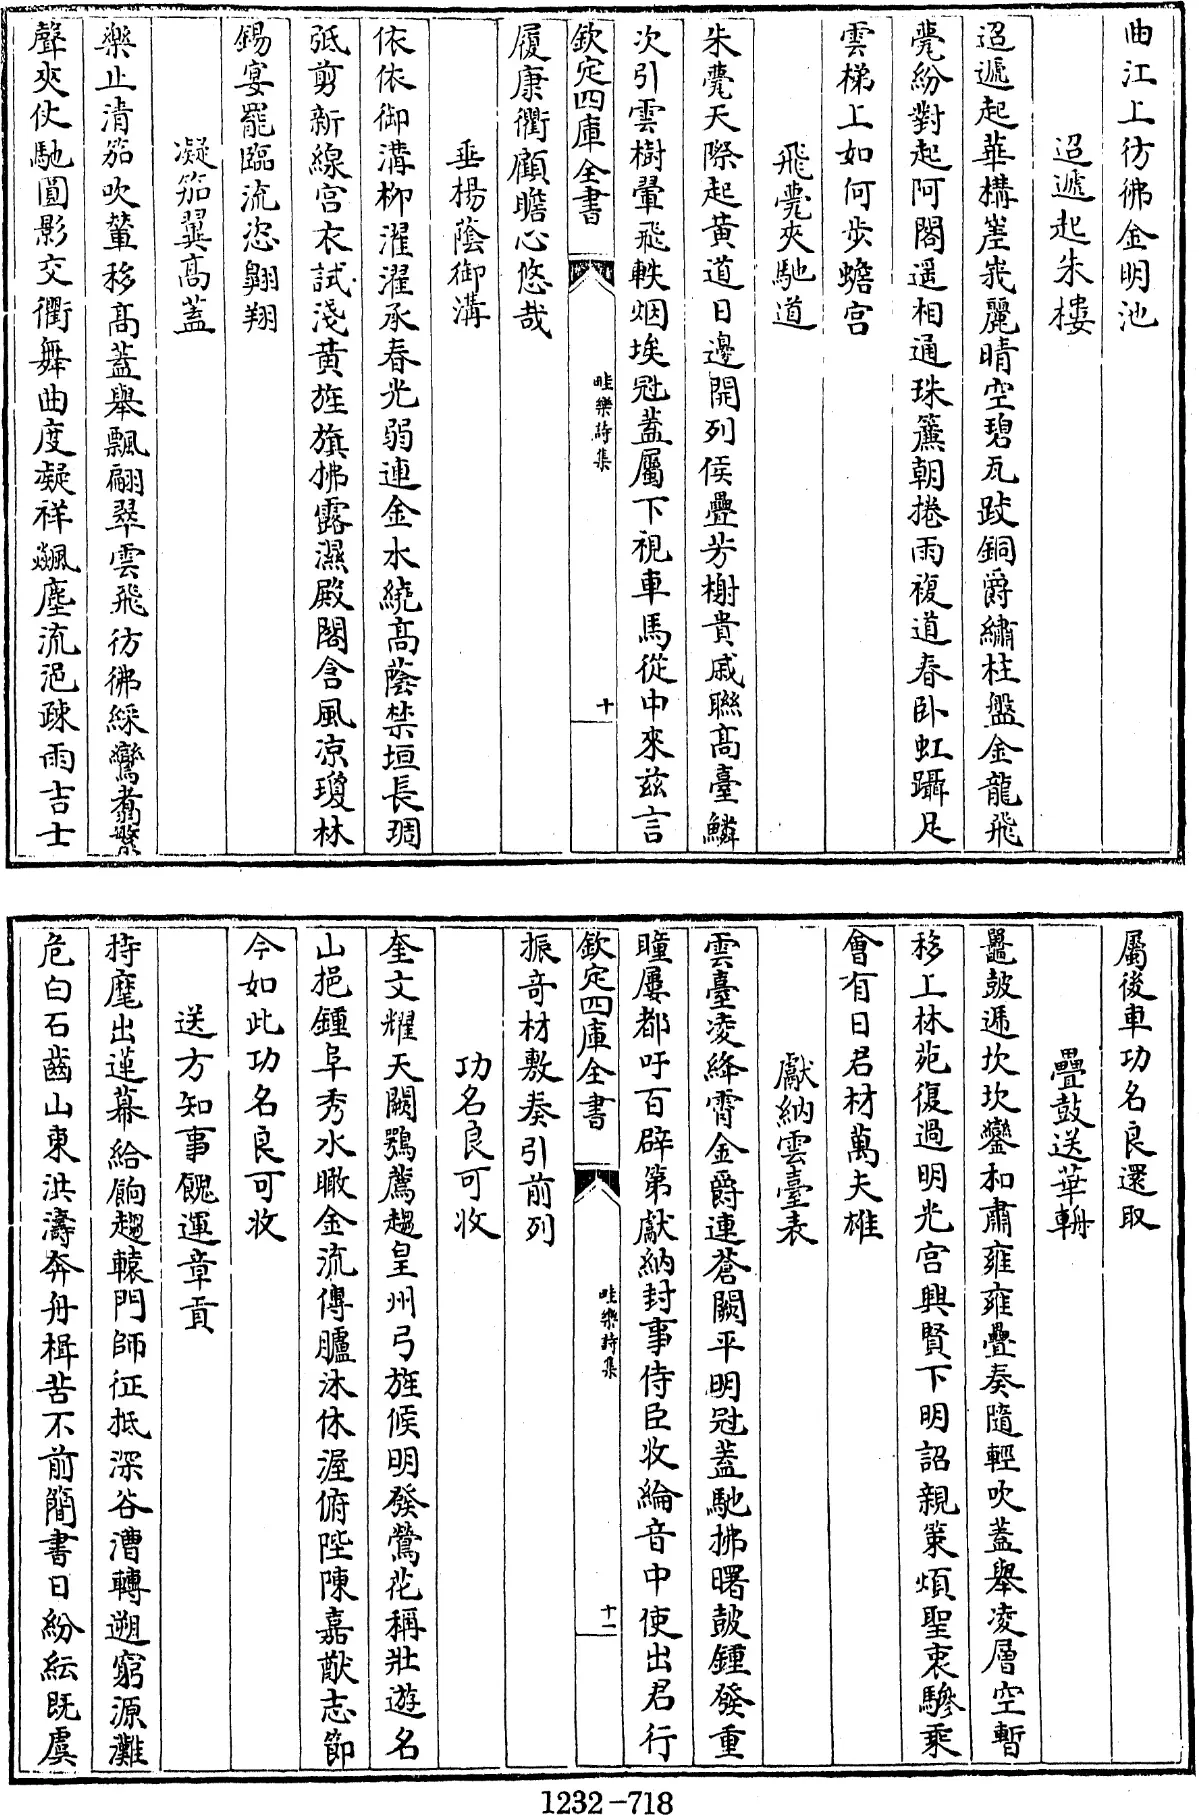 曲江上彷彿金明池
迢遞起朱樓
迢遞起華構崖峩麗晴空碧瓦跂銅爵繡柱盤金龍飛
甍紛對起阿閣遥相通珠簾朝捲雨複道春卧虹躡足
雲梯上如何步蟾宫
飛甍夾馳道
朱甍天際起黄道日邊開列侯疊芳榭貴戚聯髙臺鱗
次引雲樹翬飛軼烟埃冠蓋屬下視車馬從中來兹言
欽定四庫全書
畦樂詩集
十
履康衢顧瞻心悠哉
垂楊蔭御溝
依依御溝柳濯濯承春光弱連金水繞髙蔭禁垣長琱
弧剪新線宫衣試淺黄旌旗拂露濕殿閣含風凉瓊林
錫宴罷臨流恣翺翔
凝笳翼髙蓋
樂止清笳吹輦移髙蓋舉飄翩翠雲飛彷彿綵鸞翥繁
聲夾仗馳圓影交衢舞曲度凝祥飈塵流浥疎雨吉士
屬後車功名良還取
疊鼓送華輈
鼉鼓逓坎坎鑾和肅雍雍疊奏隨輕吹蓋舉凌層空暫
移上林苑復過明光宫興賢下明詔親策煩聖衷驂乘
會有日君材萬夫雄
獻納雲臺表
雲臺凌絳霄金爵連蒼闕平明冠蓋馳拂曙鼓鍾發重
瞳屢都吁百辟第獻納封事侍臣收綸音中使出君行
欽定四庫全書
畦樂詩集
十一
振竒材敷奏引前列
功名良可收
奎文耀天闕鶚薦趨皇州弓旌候明發鶯花稱壯遊名
山挹鍾阜秀水瞰金流傳臚沐休渥俯陛陳嘉猷志節
今如此功名良可收
送方知事餽運章貢
持麾出蓮幕給餉趨轅門師征抵深谷漕轉遡窮源灘
危白石齒山東洪濤奔舟楫苦不前簡書日紛紜既虞
1232-718